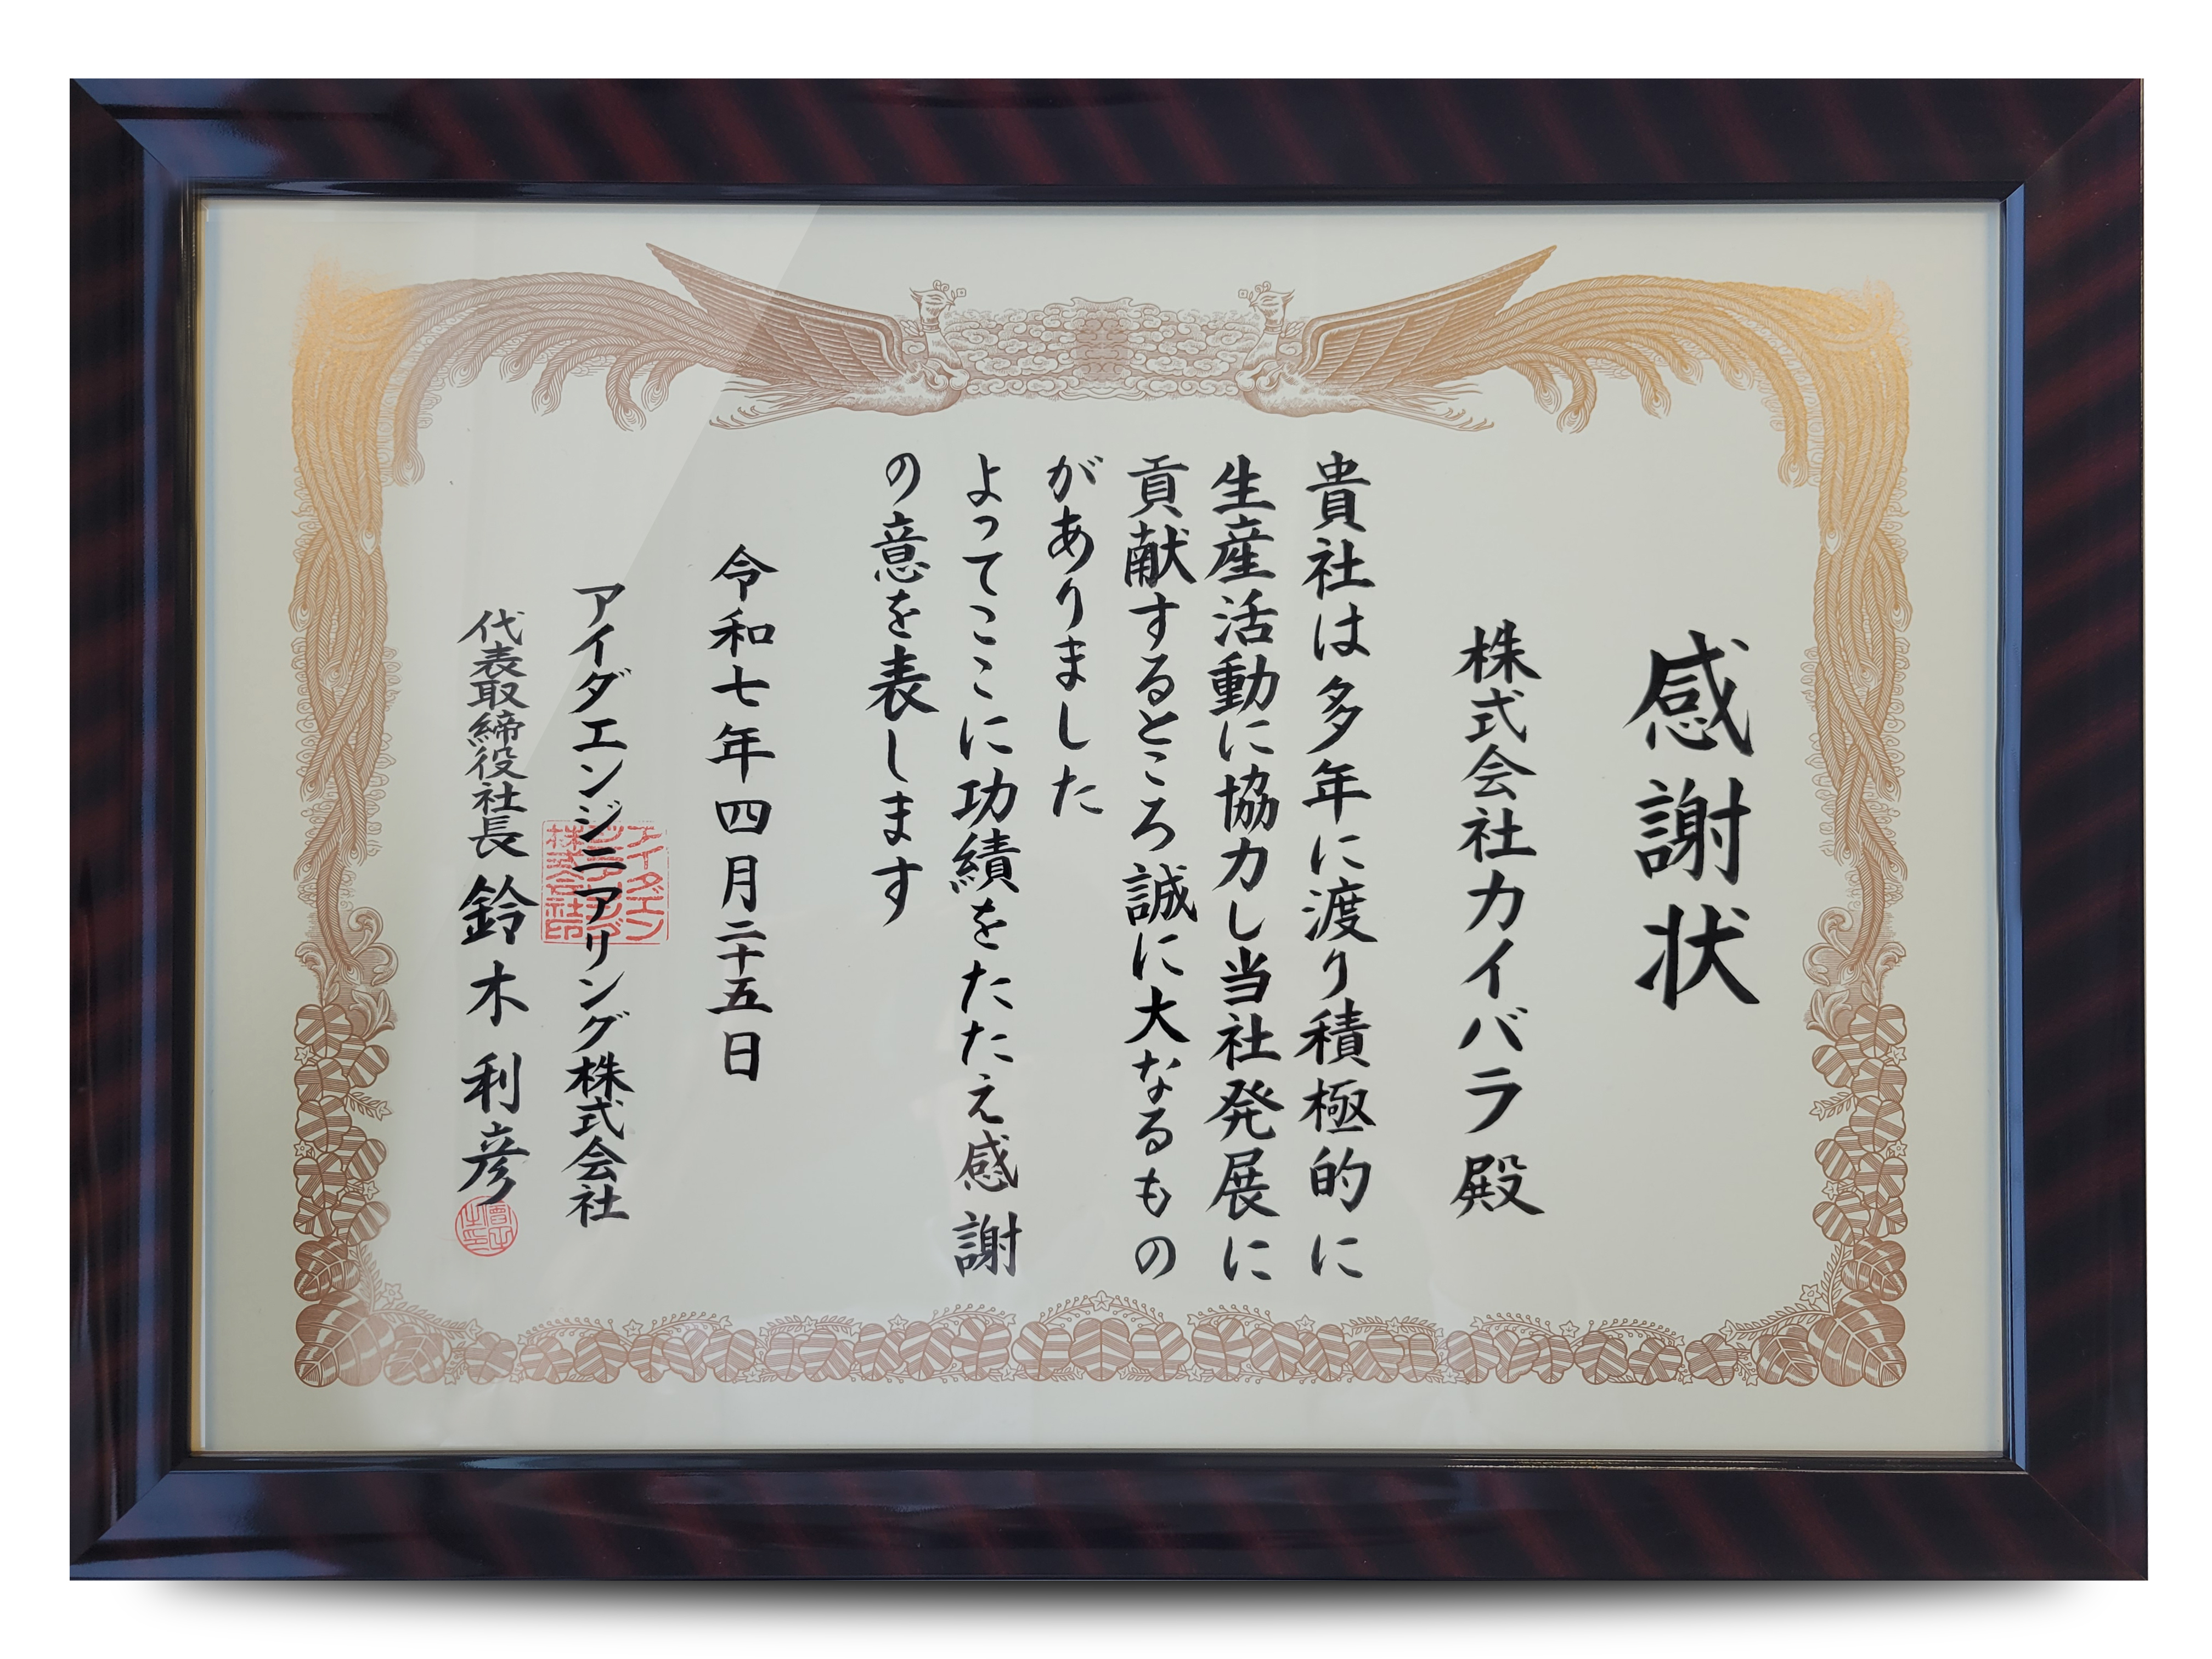 感謝状
株式会社カイバラ殿
貴社は多年に渡り積極的に
生産活動に協力し当社発展に
貢献するところ誠に大なるもの
がありました
よってここに功績をたたえ感謝
の意を表します
令和七年四月二十五日
アイダエンジニアリング株式会社
代表取締役社長 鈴木利彦
アイダエン
ジニアリング
株式会社印